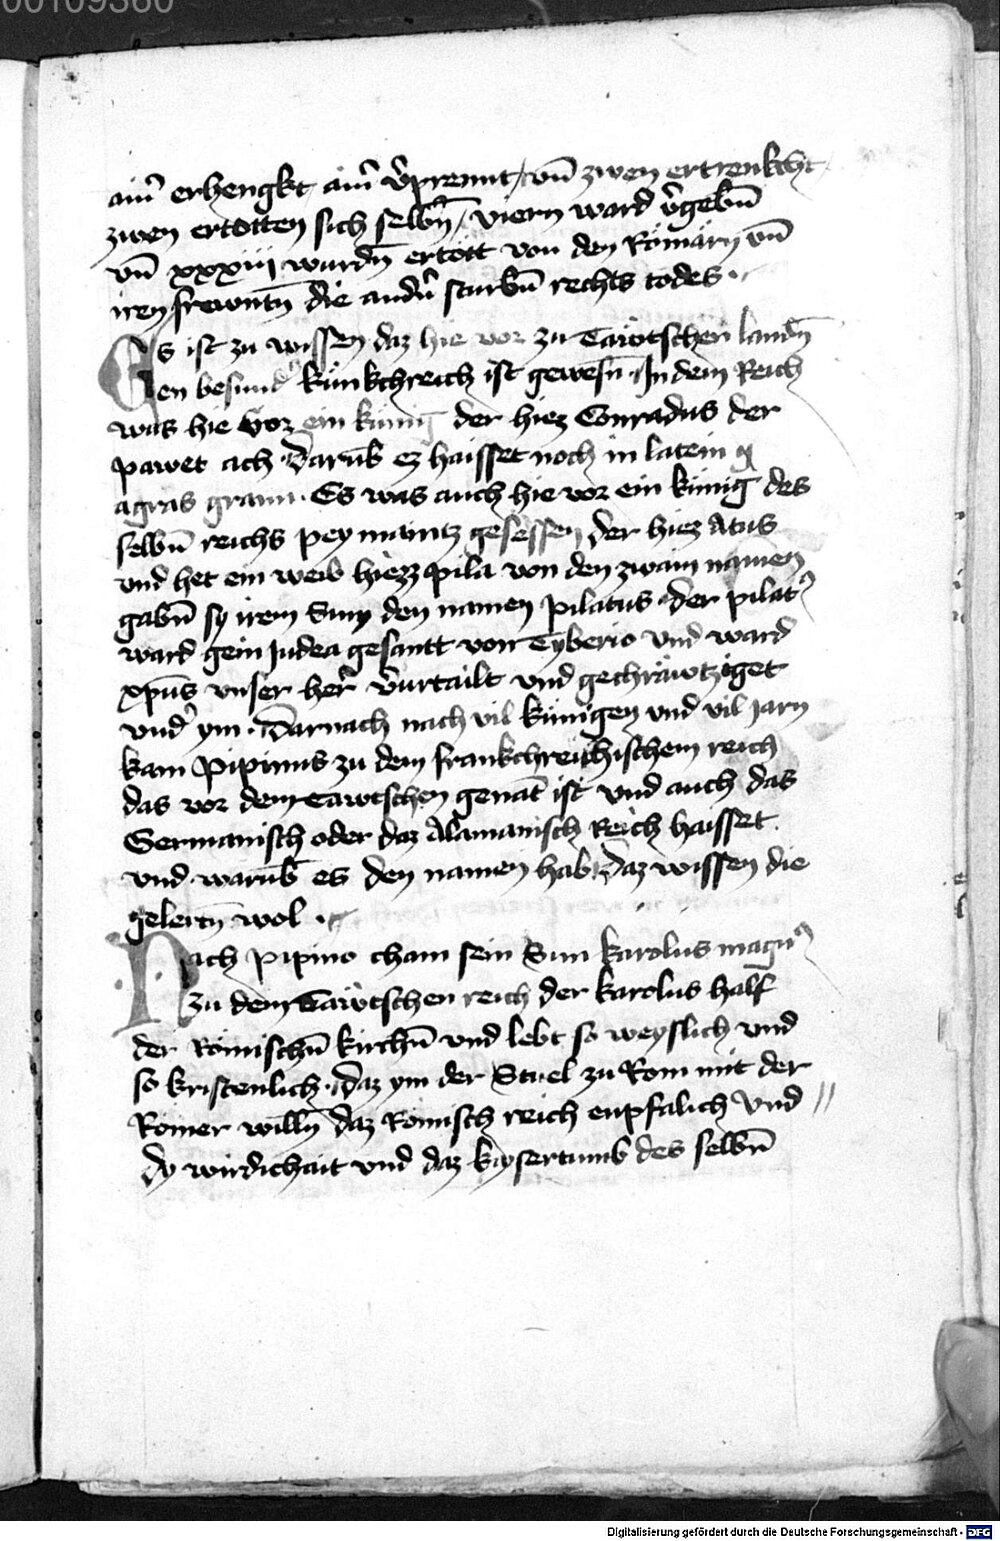 00109360
ainˀ erhengkt ainˀ v̉prennt / vn̄ zwen ertrenkcht
zwen ertotten sich selbn̄ / viern ward v̉gebn̄
vn̄ xxxiij wurdn̄ ertött von den Römärn vn̄
iren frewntn̄ die andn̉ sturbn̄ rechts todes ·
Es ist zu wissen daz hie vor zu Tawtschen landn̄
ein besundˀ künkchreich ist gewesn̄ · In dem Reich
was hie vor ein künig der hiez Conradus der
pawet ach · Darūb ez haisset noch in latein
agras grann · Es was auch hie vor ein künig des
selbn̄ reichs pey maintz gesessen der hiez Atus
und het ein weib hiezz pila von den zwain namen
gabn̄ sy irem Sun den namen pilatus · der pilatˀ
ward gein Judea gesantt von Tyberio und ward
xp̄us unser herˀ v̉urtailt und gechräwtziget
undˀ ym · Darnach nach vil künigen und vil jarn
kam Pipinus zu dem frankchreichischem reich
das vor dem tawtschen genāt ist und auch das
Germanisch oder daz Alamanisch Reich haisset
und warūb es den namen hab daz wissen die
gelertn̄ wol ·
Nach pipino cham sein Sun karolus magnˀ
zu dem Tawtschen reich der karolus half
der Römischn̄ kirchn̄ und lebt so weyslich und
so kristenlich · daz ym der Stuel zu Rom mit der
Römer willn̄ daz Römisch reich enpfalich und
dy wirdichait und daz kaysertumb des selbn̄
Digitalisierung gefördert durch die Deutsche Forschungsgemeinschaft - DFG